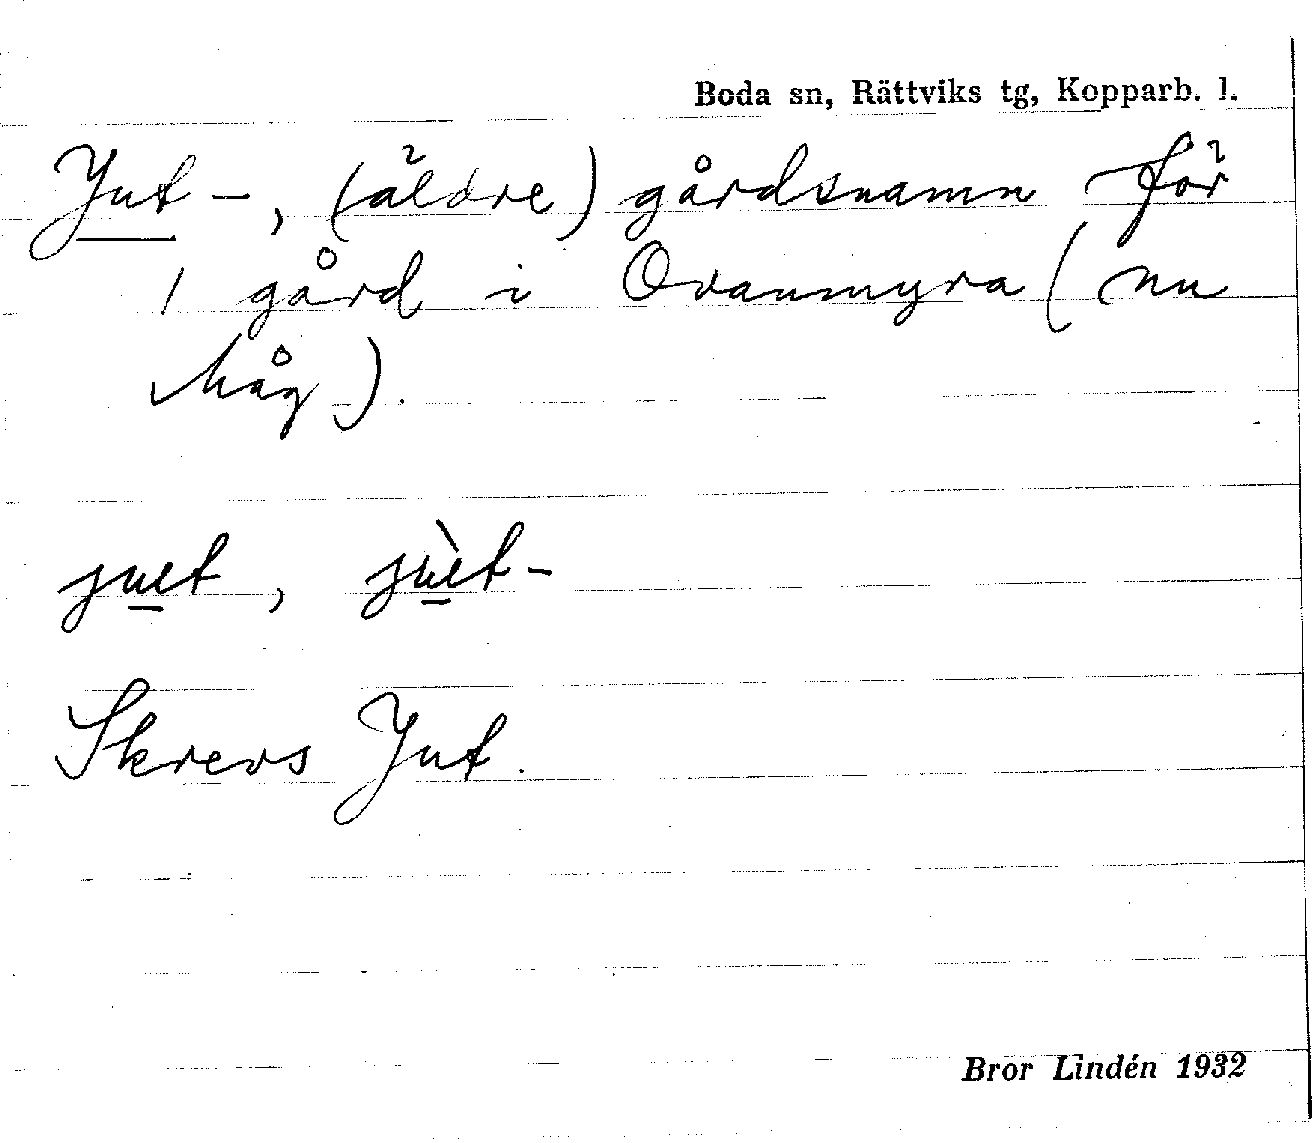 Boda sn, Rättviks tg, Kopparb. l.
Jut-, (äldre) gårdsnamn för
1 gård i Ovanmyra (nu
Måg-).
juet, jùet-
Skrevs Jut.
Bror Lindén 1932